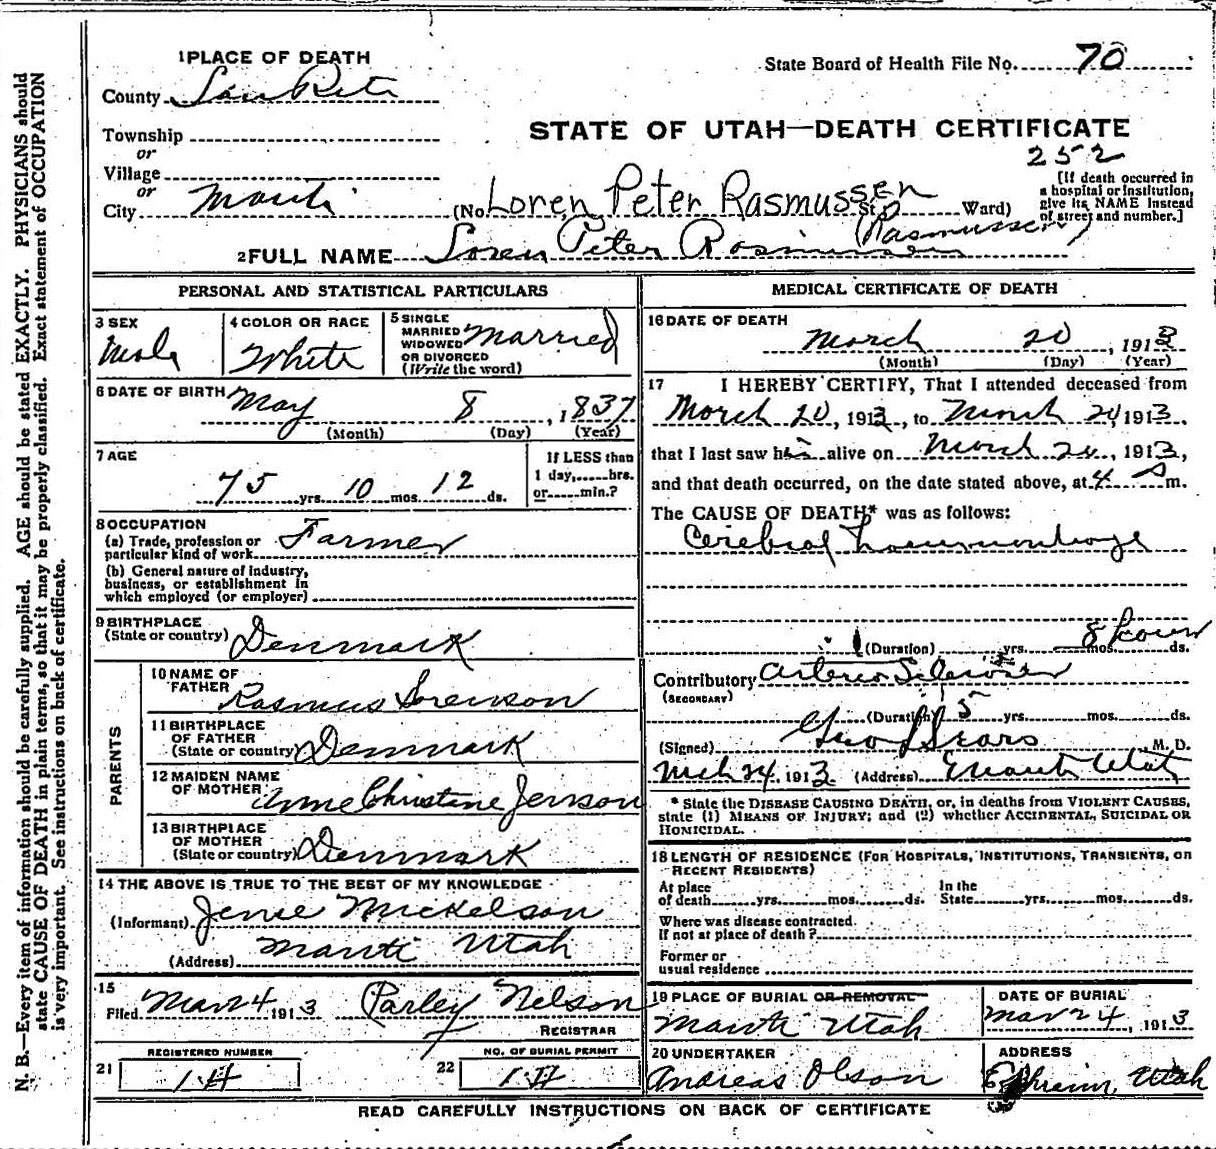 1 PLACE OF DEATH
State Board of Health File No. 70
County SanPete
STATE OF UTAH—DEATH CERTIFICATE
252
Township
or
Village
or
City Manti (No. Loren Peter Rasmussen St. Ward)
[If death occurred in
a hospital or institution,
give its NAME instead
of street and number.]
(Rasmussen)
2 FULL NAME Loren Peter Rasmussen
PERSONAL AND STATISTICAL PARTICULARS
3 SEX
Male
4 COLOR OR RACE
White
5 SINGLE
MARRIED
WIDOWED
OR DIVORCED
(Write the word)
Married
6 DATE OF BIRTH May 8, 1837
(Month) (Day) (Year)
7 AGE
75 yrs. 10 mos. 12 ds.
If LESS than
1 day,.....hrs.
or.....min.?
8 OCCUPATION
(a) Trade, profession or
particular kind of work Farmer
(b) General nature of industry,
business, or establishment in
which employed (or employer)
9 BIRTHPLACE
(State or country) Denmark
PARENTS
10 NAME OF
FATHER Rasmus Sorenson
11 BIRTHPLACE
OF FATHER
(State or country) Denmark
12 MAIDEN NAME
OF MOTHER Anne Christine Jenson
13 BIRTHPLACE
OF MOTHER
(State or country) Denmark
14 THE ABOVE IS TRUE TO THE BEST OF MY KNOWLEDGE
(Informant) Mickelson
(Address) Manti Utah
15
Filed Mar 24 1913 Parley Nelson
REGISTRAR
REGISTERED NUMBER
21
NO. OF BURIAL PERMIT
22
MEDICAL CERTIFICATE OF DEATH
16 DATE OF DEATH
March 20, 1913
(Month) (Day) (Year)
17 I HEREBY CERTIFY, That I attended deceased from
March 20, 1913, to March 20, 1913.
that I last saw his alive on March 20, 1913,
and that death occurred, on the date stated above, at 4 A m.
The CAUSE OF DEATH* was as follows:
Cerebral
(Duration) yrs. mos. ds.
8 hours
Contributory Arterio
(SECONDARY)
(Duration) 5 yrs. mos. ds.
(Signed) Geo L Sears, M. D.
Mch 24, 1913 (Address) Manti Utah
* State the DISEASE CAUSING DEATH, or, in deaths from VIOLENT CAUSES,
state (1) MEANS OF INJURY; and (2) whether ACCIDENTAL, SUICIDAL OR
HOMICIDAL.
18 LENGTH OF RESIDENCE (FOR HOSPITALS, INSTITUTIONS, TRANSIENTS, OR
RECENT RESIDENTS)
At place In the
of death yrs. mos. ds. State yrs. mos. ds.
Where was disease contracted.
If not at place of death?
Former or
usual residence
19 PLACE OF BURIAL OR REMOVAL
Manti Utah
DATE OF BURIAL
Mar 24, 1913
20 UNDERTAKER
Andreas Olson
ADDRESS
Ephraim, Utah
READ CAREFULLY INSTRUCTIONS ON BACK OF CERTIFICATE
N. B.—Every item of information should be carefully supplied. AGE should be stated EXACTLY. PHYSICIANS should
state CAUSE OF DEATH in plain terms, so that it may be properly classified. Exact statement of OCCUPATION
is very important. See instructions on back of certificate.